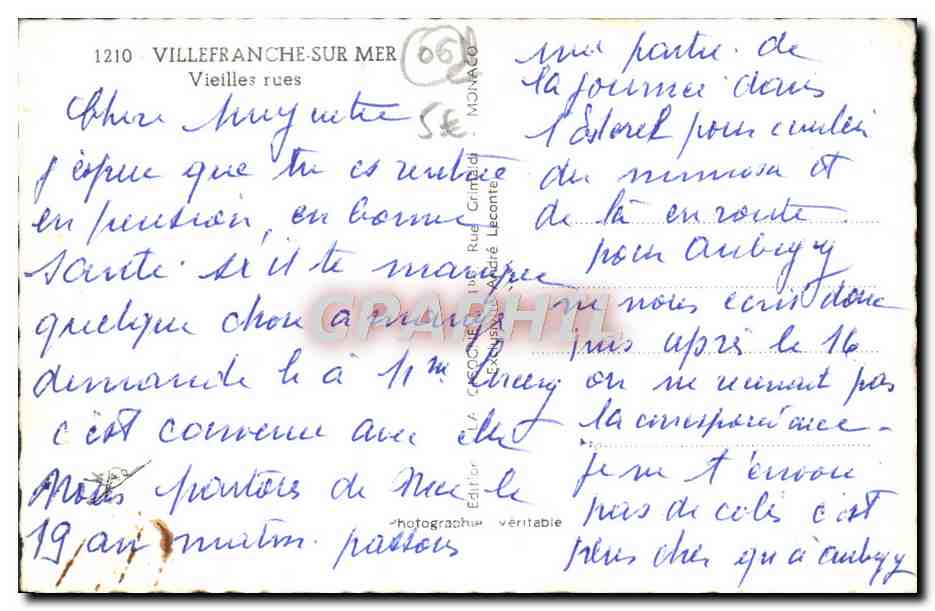 1210 VILLEFRANCHE-SUR MER
Vieilles rues
06
5€
Chère Muguette
j'espere que tu es rentrée
en pension, en bonne
santé. si il te manque
quelque chose a mange
demande le à Mme
c'est convenu avec elle
Nous partons de Nice le
19 au matin. passons
Edition LA CIGOGNE Rue Grimaldi MONACO
Exclusivité André Leconte
Photographie véritable
CPAPHIL
une partie de
la journée dans
l'Esterel pour cueillir
du mimosa et
de là en route
pour Aubigny
ne nous ecris donc
pas après le 16
on ne renvoit pas
la correspondance
je ne t'envoi
pas de colis c'est
plus cher qu'à Aubigny